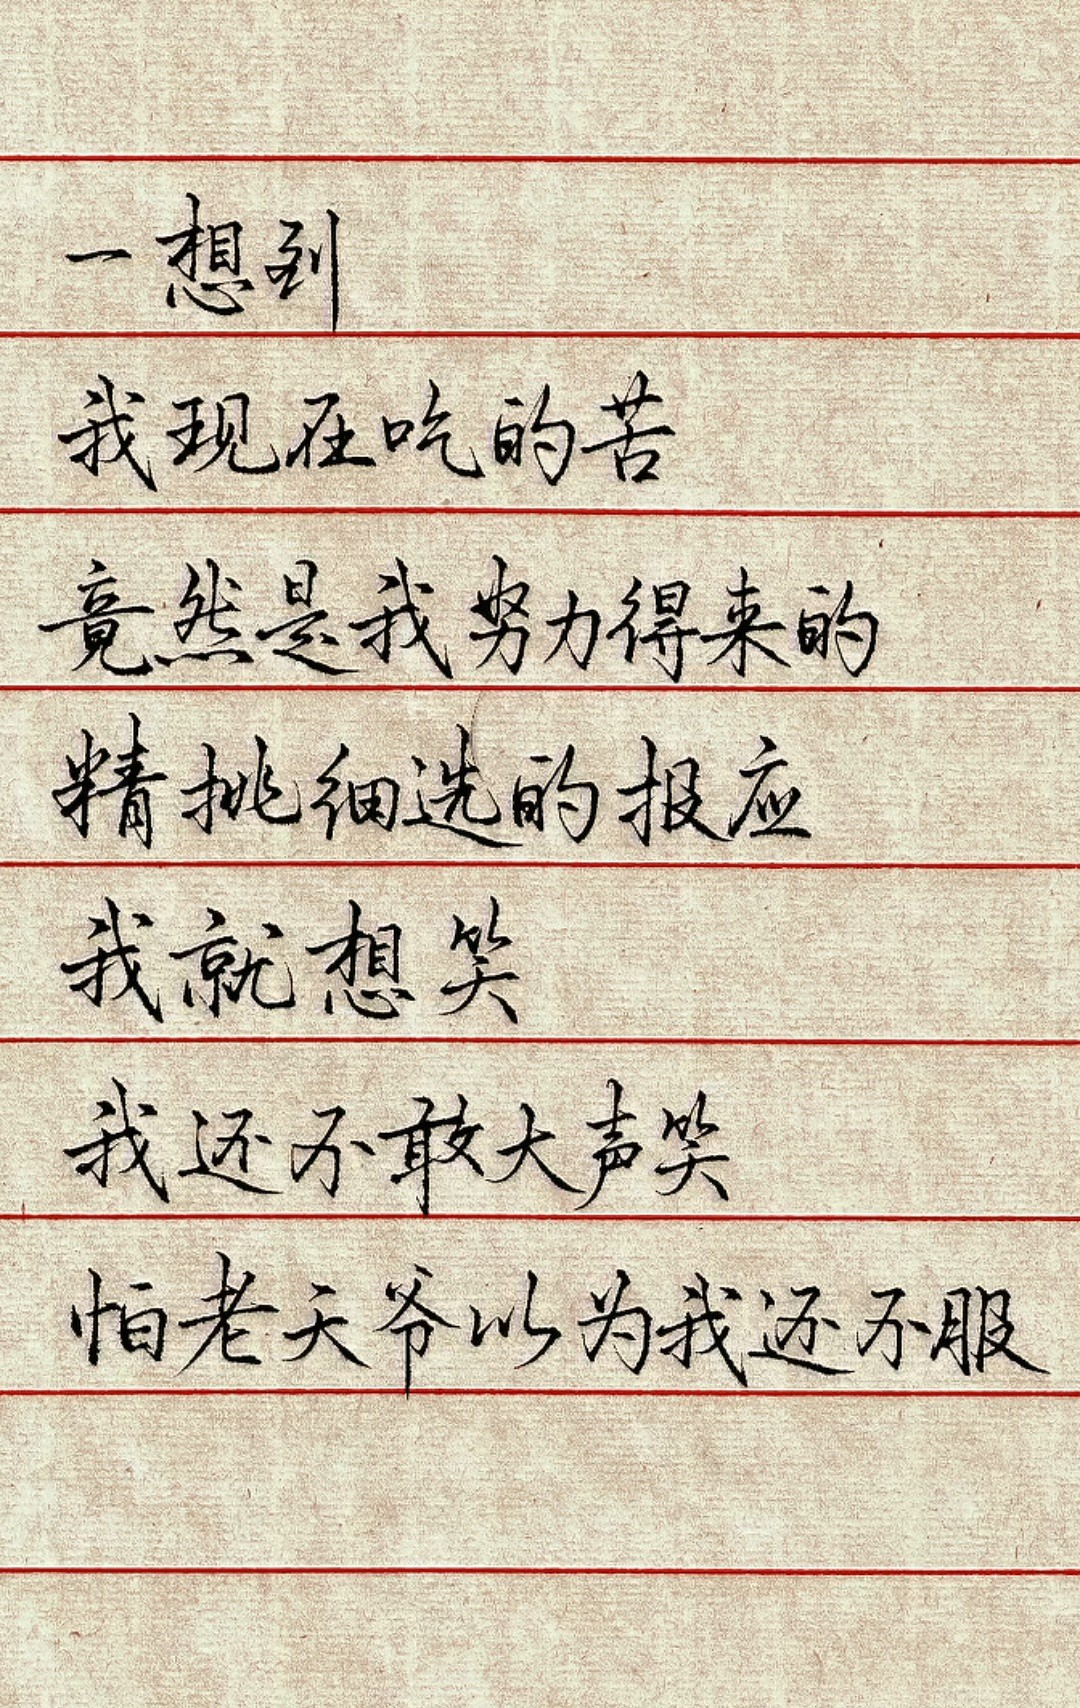 一想到
我现在吃的苦
竟然是我努力得来的
精挑细选的报应
我就想笑
我还不敢大声笑
怕老天爷以为我还不服